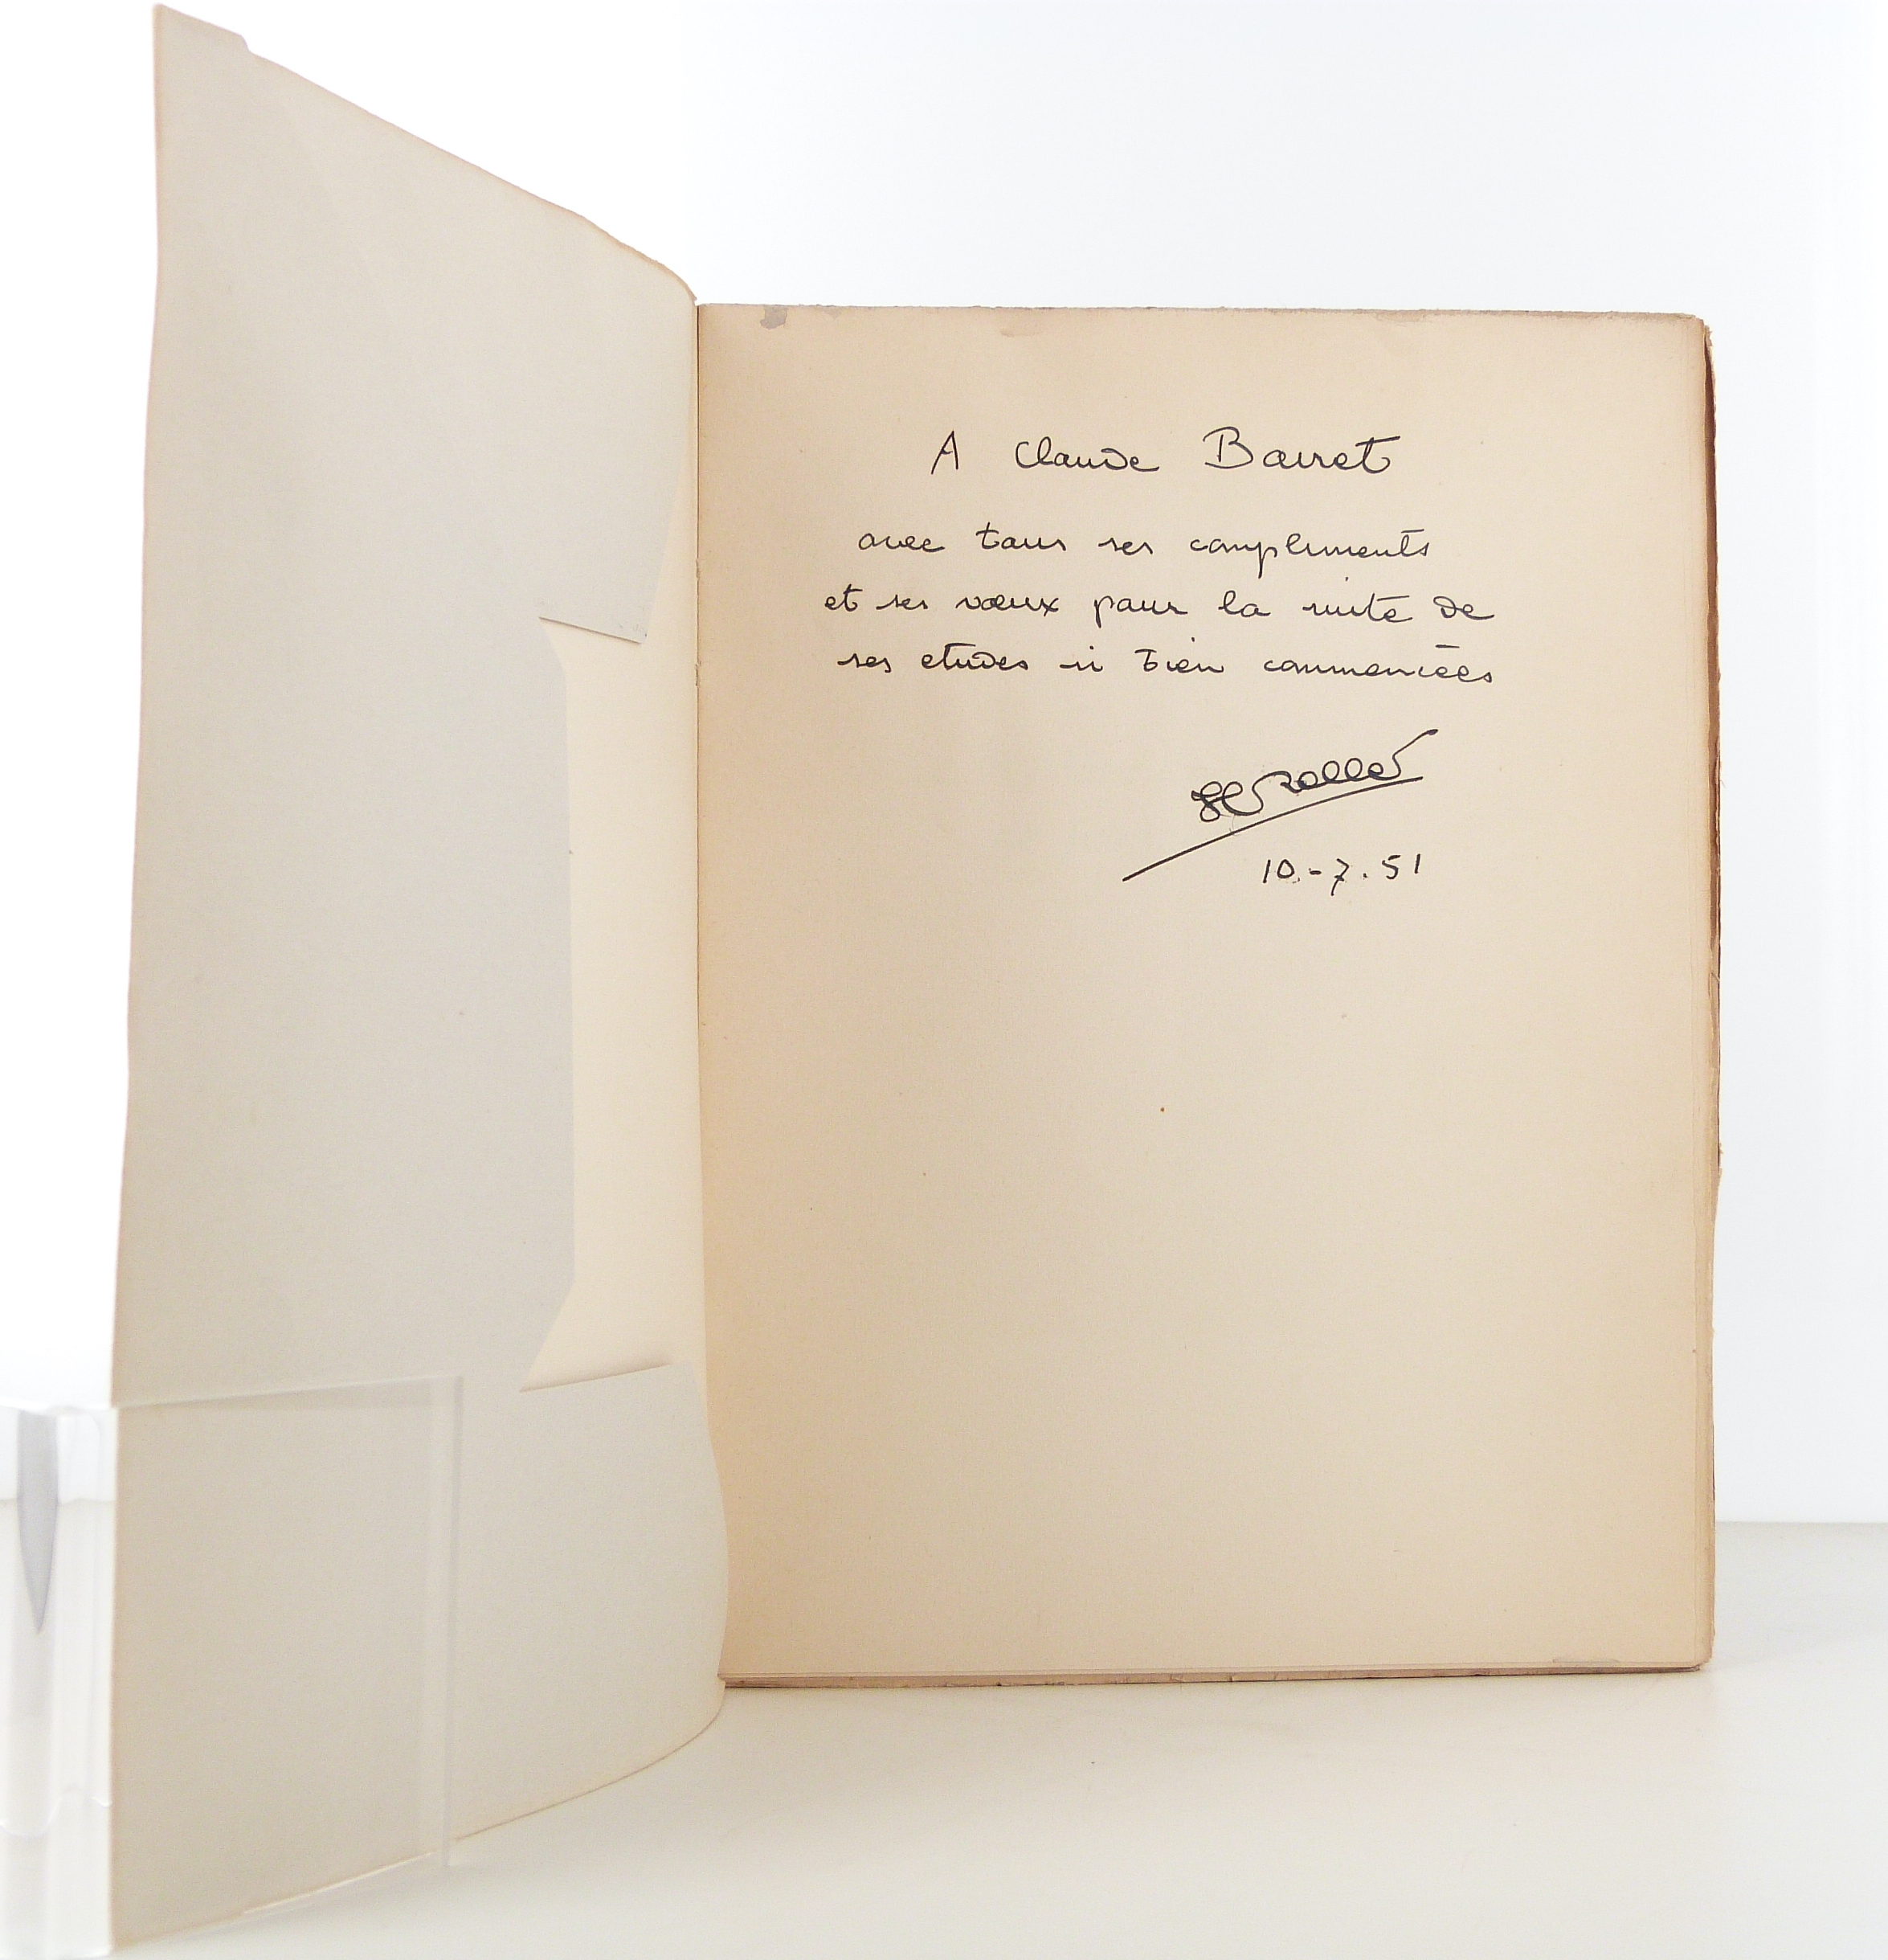 A Claude Barret
avec tous ses compliments
et ses vœux pour la suite de
ses etudes si bien commencées
10.-7.51